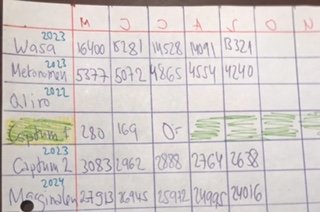 M J J A S O N
2023
Wasa 16400 15281 14528 14091 13321
2023
Metonomen 5377 5072 4865 4554 4240
2022
Qliro
Captum 1 280 169 0:-
2023
Captum 2 3083 2962 2888 2764 2638
2024
Marginalen 27913 26945 25972 24995 24016